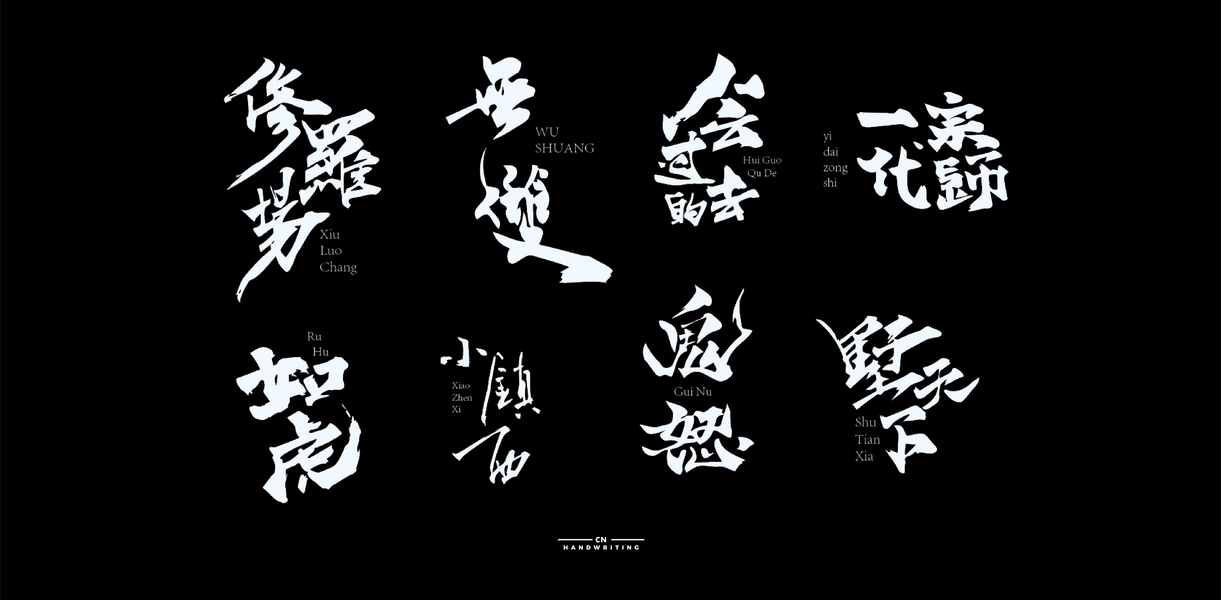 修羅場
Xiu
Luo
Chang
無雙
WU
SHUANG
会过去的
Hui Guo
Qu De
一代
宗師
yi
dai
zong
shi
如虎
Ru
Hu
小鎮西
Xiao
Zhen
Xi
鬼怒
Gui Nu
墅天下
Shu
Tian
Xia
CN
HANDWRITING